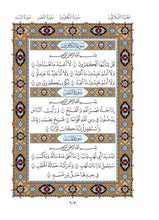 الجزء الثلاثون سورة الكافرون سورة النصر سورة المسد
سورة الكافرون
بسم الله الرحمن الرحيم
قل يا أيها الكافرون ۝١ لا أعبد ما تعبدون ۝٢
ولا أنتم عابدون ما أعبد ۝٣ ولا أنا عابد ما عبدتم ۝٤
ولا أنتم عابدون ما أعبد ۝٥ لكم دينكم ولي دين ۝٦
سورة النصر
بسم الله الرحمن الرحيم
إذا جاء نصر الله والفتح ۝١ ورأيت الناس
يدخلون في دين الله أفواجا ۝٢ فسبح بحمد ربك
واستغفره إنه كان توابا ۝٣
سورة المسد
بسم الله الرحمن الرحيم
تبت يدا أبي لهب وتب ۝١ ما أغنى عنه ماله وما كسب ۝٢
سيصلى نارا ذات لهب ۝٣ وامرأته حمالة الحطب ۝٤
في جيدها حبل من مسد ۝٥
٦٠٣